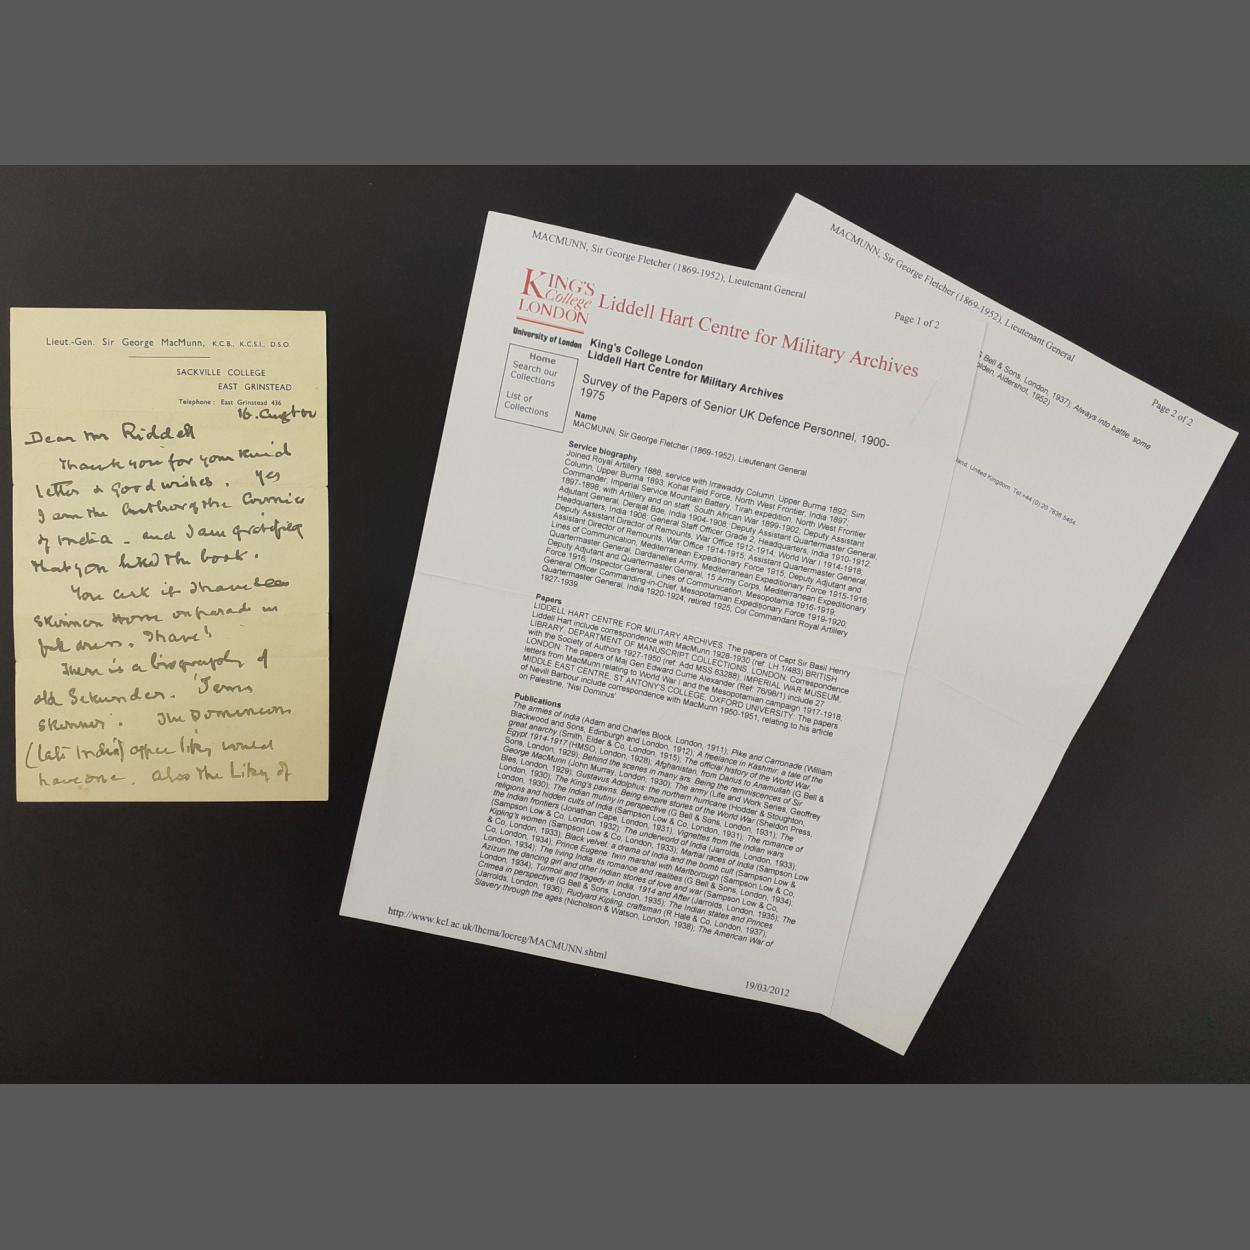 Lieut.-Gen. Sir George MacMunn, K.C.B., K.C.S.I., D.S.O.
SACKVILLE COLLEGE
EAST GRINSTEAD
Telephone : East Grinstead 436
16.
Dear Mr Riddell
Thank you for your kind
letter & good wishes. Yes
I am the author of the Armies
of India - and I am gratified
that you liked the book.
You ask if I have
Skinners Horse on parade in
full dress. I have!
There is a biography of
old Sekunder. 'James
Skinner'. The Dominions
(late India) office liby would
have one. Also the Liby of
MACMUNN, Sir George Fletcher (1869-1952), Lieutenant General
Page 1 of 2
KING'S
College
LONDON
University of London
Liddell Hart Centre for Military Archives
Home
Search our
Collections
List of
Collections
King's College London
Liddell Hart Centre for Military Archives
Survey of the Papers of Senior UK Defence Personnel, 1900-
1975
Name
MACMUNN, Sir George Fletcher (1869-1952), Lieutenant General
Service biography
Joined Royal Artillery 1888; service with Irrawaddy Column, Upper Burma 1892; Sim
Column, Upper Burma 1893; Kohat Field Force, North West Frontier, India 1897;
Commander, Imperial Service Mountain Battery, Tirah expedition, North West Frontier
1897-1898; with Artillery and on staff, South African War 1899-1902; Deputy Assistant
Adjutant General, Derajat Bde, India 1904-1908; Deputy Assistant Quartermaster General,
Headquarters, India 1908; General Staff Officer Grade 2, Headquarters, India 1910-1912;
Deputy Assistant Director of Remounts, War Office 1912-1914; World War I 1914-1918;
Assistant Director of Remounts, War Office 1914-1915; Assistant Quartermaster General,
Lines of Communication, Mediterranean Expeditionary Force 1915; Deputy Adjutant and
Quartermaster General, Dardanelles Army, Mediterranean Expeditionary Force 1915-1916
Deputy Adjutant and Quartermaster General, 15 Army Corps, Mediterranean Expeditionary
Force 1916; Inspector General, Lines of Communication, Mesopotamia 1916-1919;
General Officer Commanding-in-Chief, Mesopotamian Expeditionary Force 1919-1920;
Quartermaster General, India 1920-1924; retired 1925; Col Commandant Royal Artillery
1927-1939
Papers
LIDDELL HART CENTRE FOR MILITARY ARCHIVES. The papers of Capt Sir Basil Henry
Liddell Hart include correspondence with MacMunn 1928-1930 (ref: LH 1/483) BRITISH
LIBRARY, DEPARTMENT OF MANUSCRIPT COLLECTIONS, LONDON. Correspondence
with the Society of Authors 1927-1950 (ref: Add MSS 63288); IMPERIAL WAR MUSEUM,
LONDON. The papers of Maj Gen Edward Currie Alexander (Ref: 76/98/1) include 27
letters from MacMunn relating to World War I and the Mesopotamian campaign 1917-1918;
MIDDLE EAST CENTRE, ST ANTONY'S COLLEGE, OXFORD UNIVERSITY: The papers
of Nevill Barbour include correspondence with MacMunn 1950-1951, relating to his article
on Palestine, 'Nisi Dominus'
Publications
The armies of India (Adam and Charles Block, London, 1911); Pike and Carronade (William
Blackwood and Sons, Edinburgh and London, 1912); A freelance in Kashmir: a tale of the
great anarchy (Smith, Elder & Co, London, 1915); The official history of the World War,
Egypt 1914-1917 (HMSO, London, 1928); Afghanistan, from Darius to Amanullah (G Bell &
Sons, London, 1929); Behind the scenes in many ars. Being the reminiscences of Sir
George MacMunn (John Murray, London, 1930); The army (Life and Work Series, Geoffrey
Bles, London, 1929); Gustavus Adolphus: the northern hurricane (Hodder & Stoughton,
London, 1930); The King's pawns. Being empire stories of the World War (Sheldon Press,
London, 1930); The Indian mutiny in perspective (G Bell & Sons, London, 1931); The
religions and hidden cults of India (Sampson Low & Co, London, 1931); The romance of
the Indian frontiers (Jonathan Cape, London, 1931); Vignettes from the Indian wars
(Sampson Low & Co, London, 1932); The underworld of India (Jarrolds, London, 1933);
Kipling's women (Sampson Low & Co, London, 1933); Martial races of India (Sampson Low
& Co, London, 1933); Black velvet: a drama of India and the bomb cult (Sampson Low &
Co, London, 1934); Prince Eugene: twin marshal with Marlborough (Sampson Low & Co,
Azizun the dancing girl and other Indian stories of love and war (Sampson Low & Co,
London, 1934); The living India: its romance and realities (G Bell & Sons, London, 1934);
Crimea in perspective (G Bell & Sons, London, 1935); The Indian states and Princes
(Jarrolds, London, 1936); Rudyard Kipling, craftsman (R Hale & Co, London, 1937);
Slavery through the ages (Nicholson & Watson, London, 1938); The American War of
http://www.kcl.ac.uk/lhcma/locreg/MACMUNN.shtml
19/03/2012
MACMUNN, Sir George Fletcher (1869-1952), Lieutenant General
Page 2 of 2
Bell & Sons, London, 1937); Always into battle: some
Aldershot, 1952)
United Kingdom. Tel +44 (0) 20 7836 5454